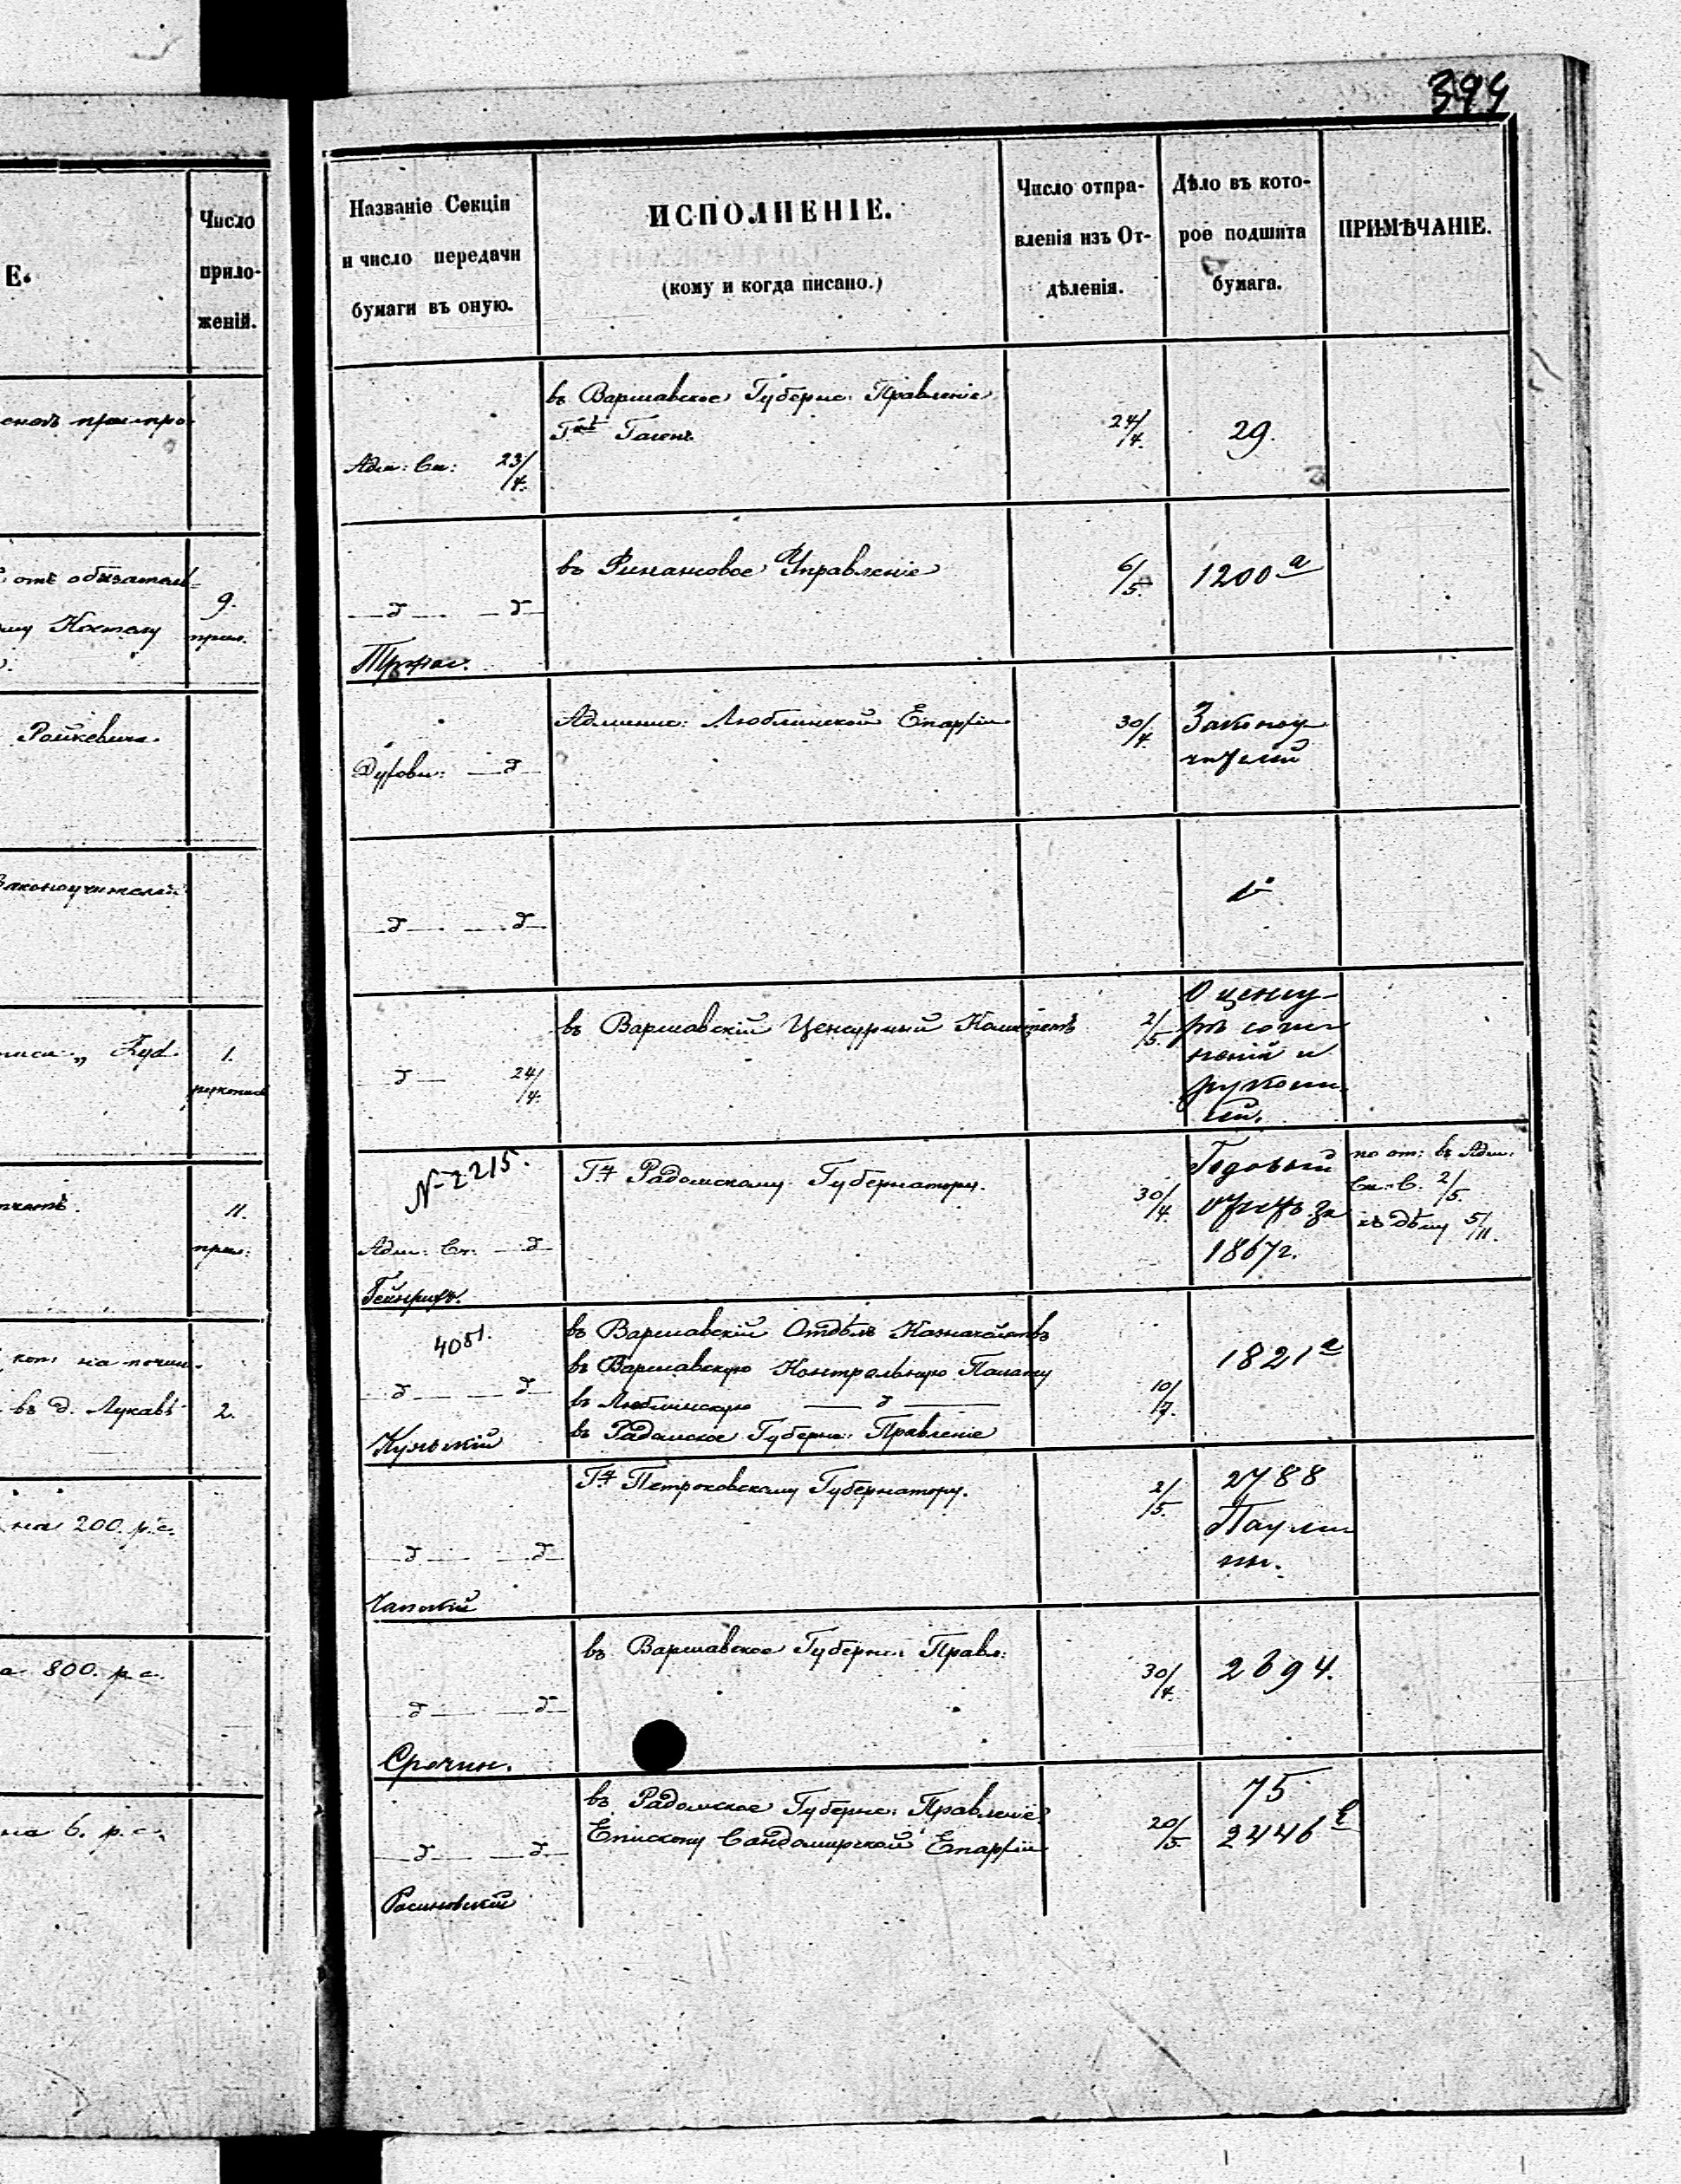 394
Е.
Число
прило-
женій.
отъ обязатель-
9.
прил.
Костелу
Ройкевича.
Законоучителей
1.
рукопись
11.
прил:
кот. на почин-
въ д. Лукавѣ
2.
на 200. р. с.
800. р. с.
на 6. р. с.
Названіе Секціи
и число передачи
бумаги въ оную.
ИСПОЛНЕНІЕ.
(кому и когда писано.)
Число отпра-
вленія изъ От-
дѣленія.
Дѣло въ кото-
рое подшита
бумага.
ПРИМѢЧАНІЕ.
Адм: Ск: 23/4.
въ Варшавское Губерн: Правленіе
24/4.
29.
— д — — д —
въ Финансовое Управленіе
6/5.
1200 а
Адмнис: Люблинской Епархіи
30/4.
Законоу
чителей
Духовн: — д —
— д — — д —
въ Варшавскій Цензурный Комитетъ
2/5.
О цензу-
рѣ сочи
неній и
рукопи
сей.
— д — 24/4.
№ 2215.
Гну Радомскому Губернатору.
30/4.
Годовый
отчетъ за
1867 г.
по от: въ Адм.
Ск. С. 2/5.
къ дѣлу 5/11.
Адм: Ск: — д —
Гейнрихъ.
4051.
въ Варшавскій Отдѣлъ Казначействъ
въ Варшавскую Контрольную Палату
въ Люблинскую — д —
въ Радомское Губерн: Правленіе
10/7.
1821 а
— д — — д —
Гну Петроковскому Губернатору.
2/5.
2788
Паули
ны.
— д — — д —
въ Варшавское Губерн: Правл:
30/4.
2694.
— д — — д —
Срочин.
въ Радомское Губерн: Правленіе
Епископу Сандомирской Епархіи
20/5.
75
2446
— д — — д —
Росиновскій